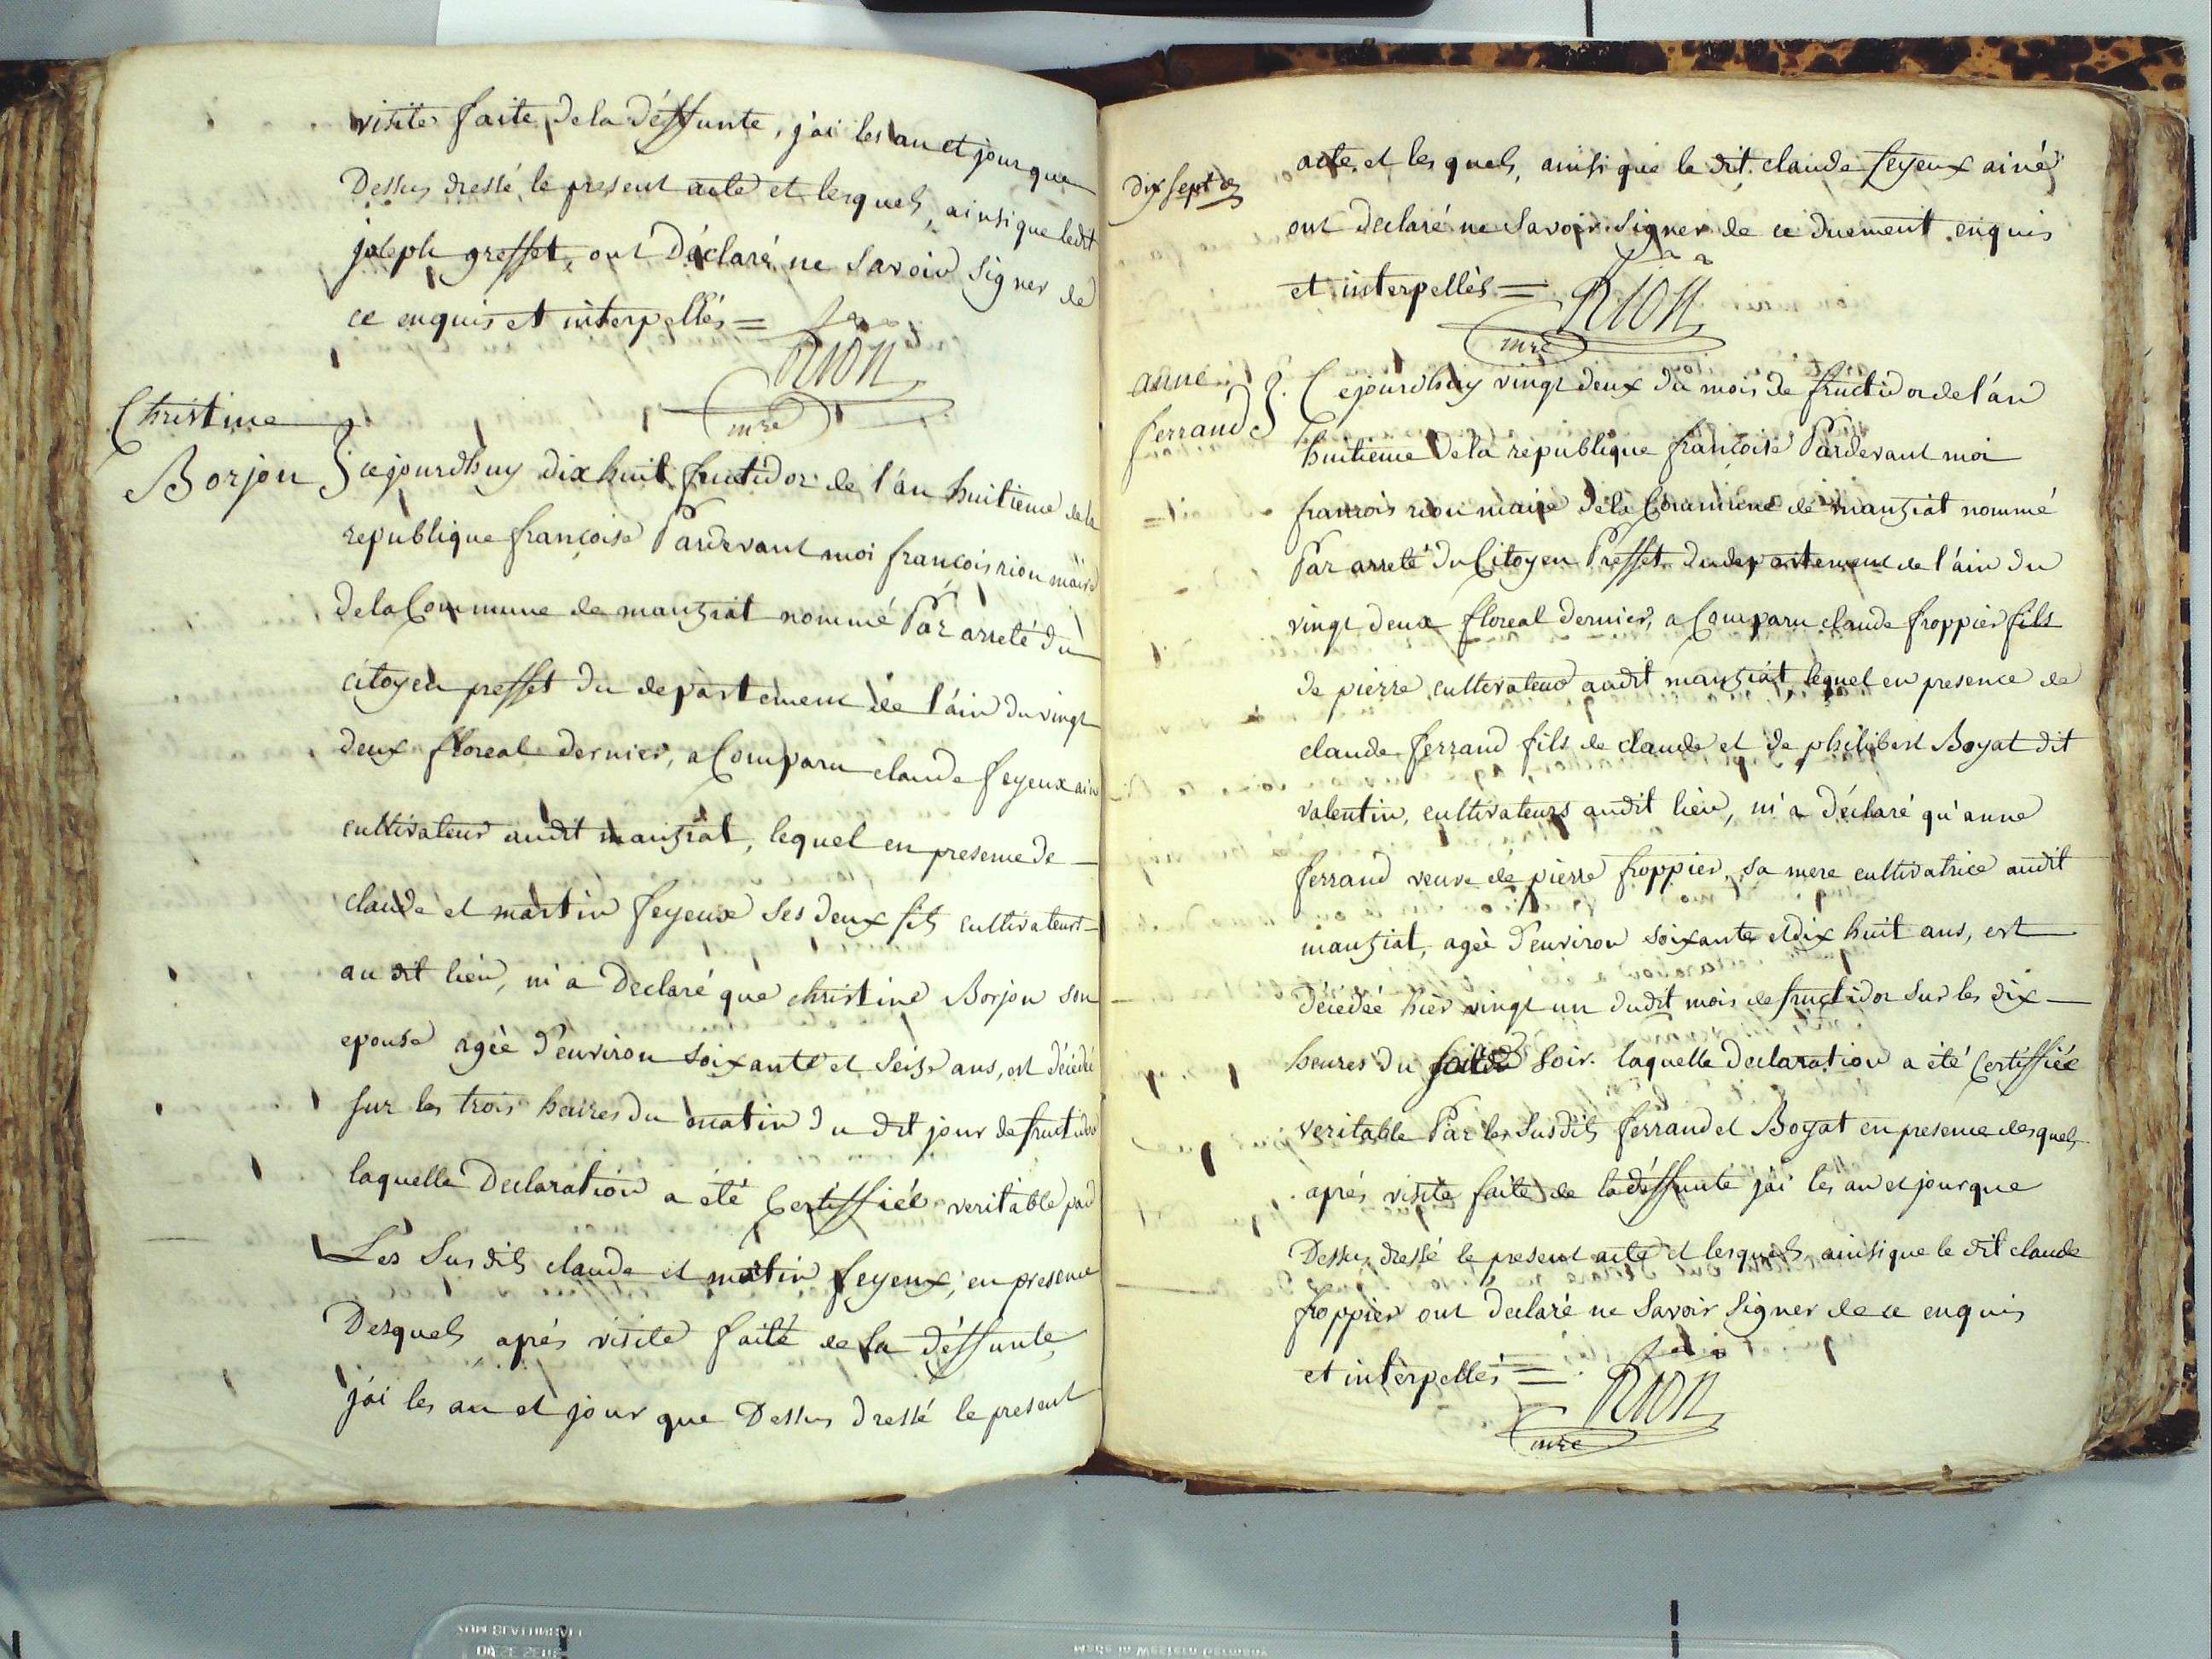 visite faite de la déffunte, j'ai les an et jour que
Dessus dressé le present acte et lesquels, ainsi que ledit
joseph greffet, ont Déclaré ne Savoir Signer de
ce enquis et interpellés =
Rion
mre
Christine
Borjon
cejourdhuy dix huit fructidor de l'an huitieme de la
republique françoise Pardevant moi francois rion maire
de la Commune de manziat nommé Par arreté du
citoyen preffet du departement de l'ain du vingt
deux floreal dernier, a Comparu claude feyeux ainé
cultivateur audit manziat, lequel en presence de
claude et martin feyeux ses deux fils cultivateurs
au dit lieu, m'a Declaré que christine Borjon son
epouse agèe d'environ soixante et seise ans, est décédé
sur les trois heures du matin du dit jour de fructidor
laquelle Declaration a été Certiffiée veritable par
Les Susdits claude et martin feyeux, en presence
Desquels après visite faite de la déffunte
j'ai les an et jour que Dessus dressé le present
dix sept
acte, et lesquels, ainsi que le dit claude feyeux ainé
ont declaré ne Savoir Signer de ce duement enquis
et interpellés =
Rion
mre
anne
ferrand
Cejourdhuy vingt deux du mois de fructidor de l'an
huitieme de la republique francoise Pardevant moi
francois rion maire de la Commune de manziat nommé
Par arreté du Citoyen Preffet du departement de l'ain du
vingt deux floreal dernier, a Comparu claude froppier fils
de pierre cultivateur audit manziat, lequel en presence de
claude ferrand fils de claude et de philibert Boyat dit
valentin, cultivateurs audit lieu, m'a déclaré qu'anne
ferrand veuve de pierre froppier, sa mere cultivatrice audit
manziat, agèe d'environ soixante et dix huit ans, est
décédéé hier vingt un dudit mois de fructidor sur les dix
heures du soir. laquelle declaration a été Certiffiée
veritable Par les susdits ferrand et Boyat en presence desquels
après visite faite de la déffunte j'ai les an et jour que
Dessus dressé le present acte et lesquels, ainsi que le dit claude
froppier ont déclaré ne Savoir Signer de ce enquis
et interpellés =
Rion
mre
Made in Western Germany